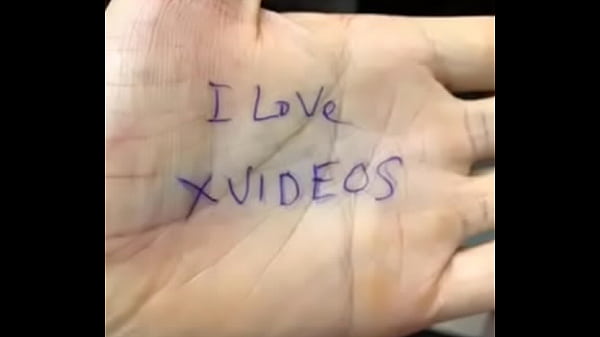 I LOVe
XVIDEOS